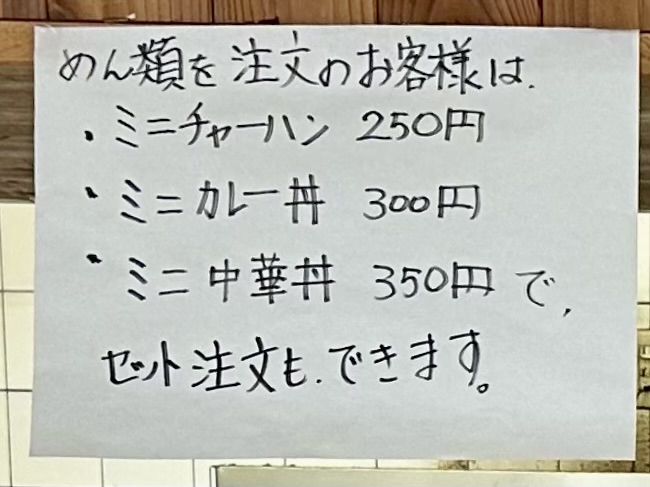 めん類を注文のお客様は、
・ミニチャーハン 250円
・ミニカレー丼 300円
・ミニ中華丼 350円で、
セット注文も、できます。